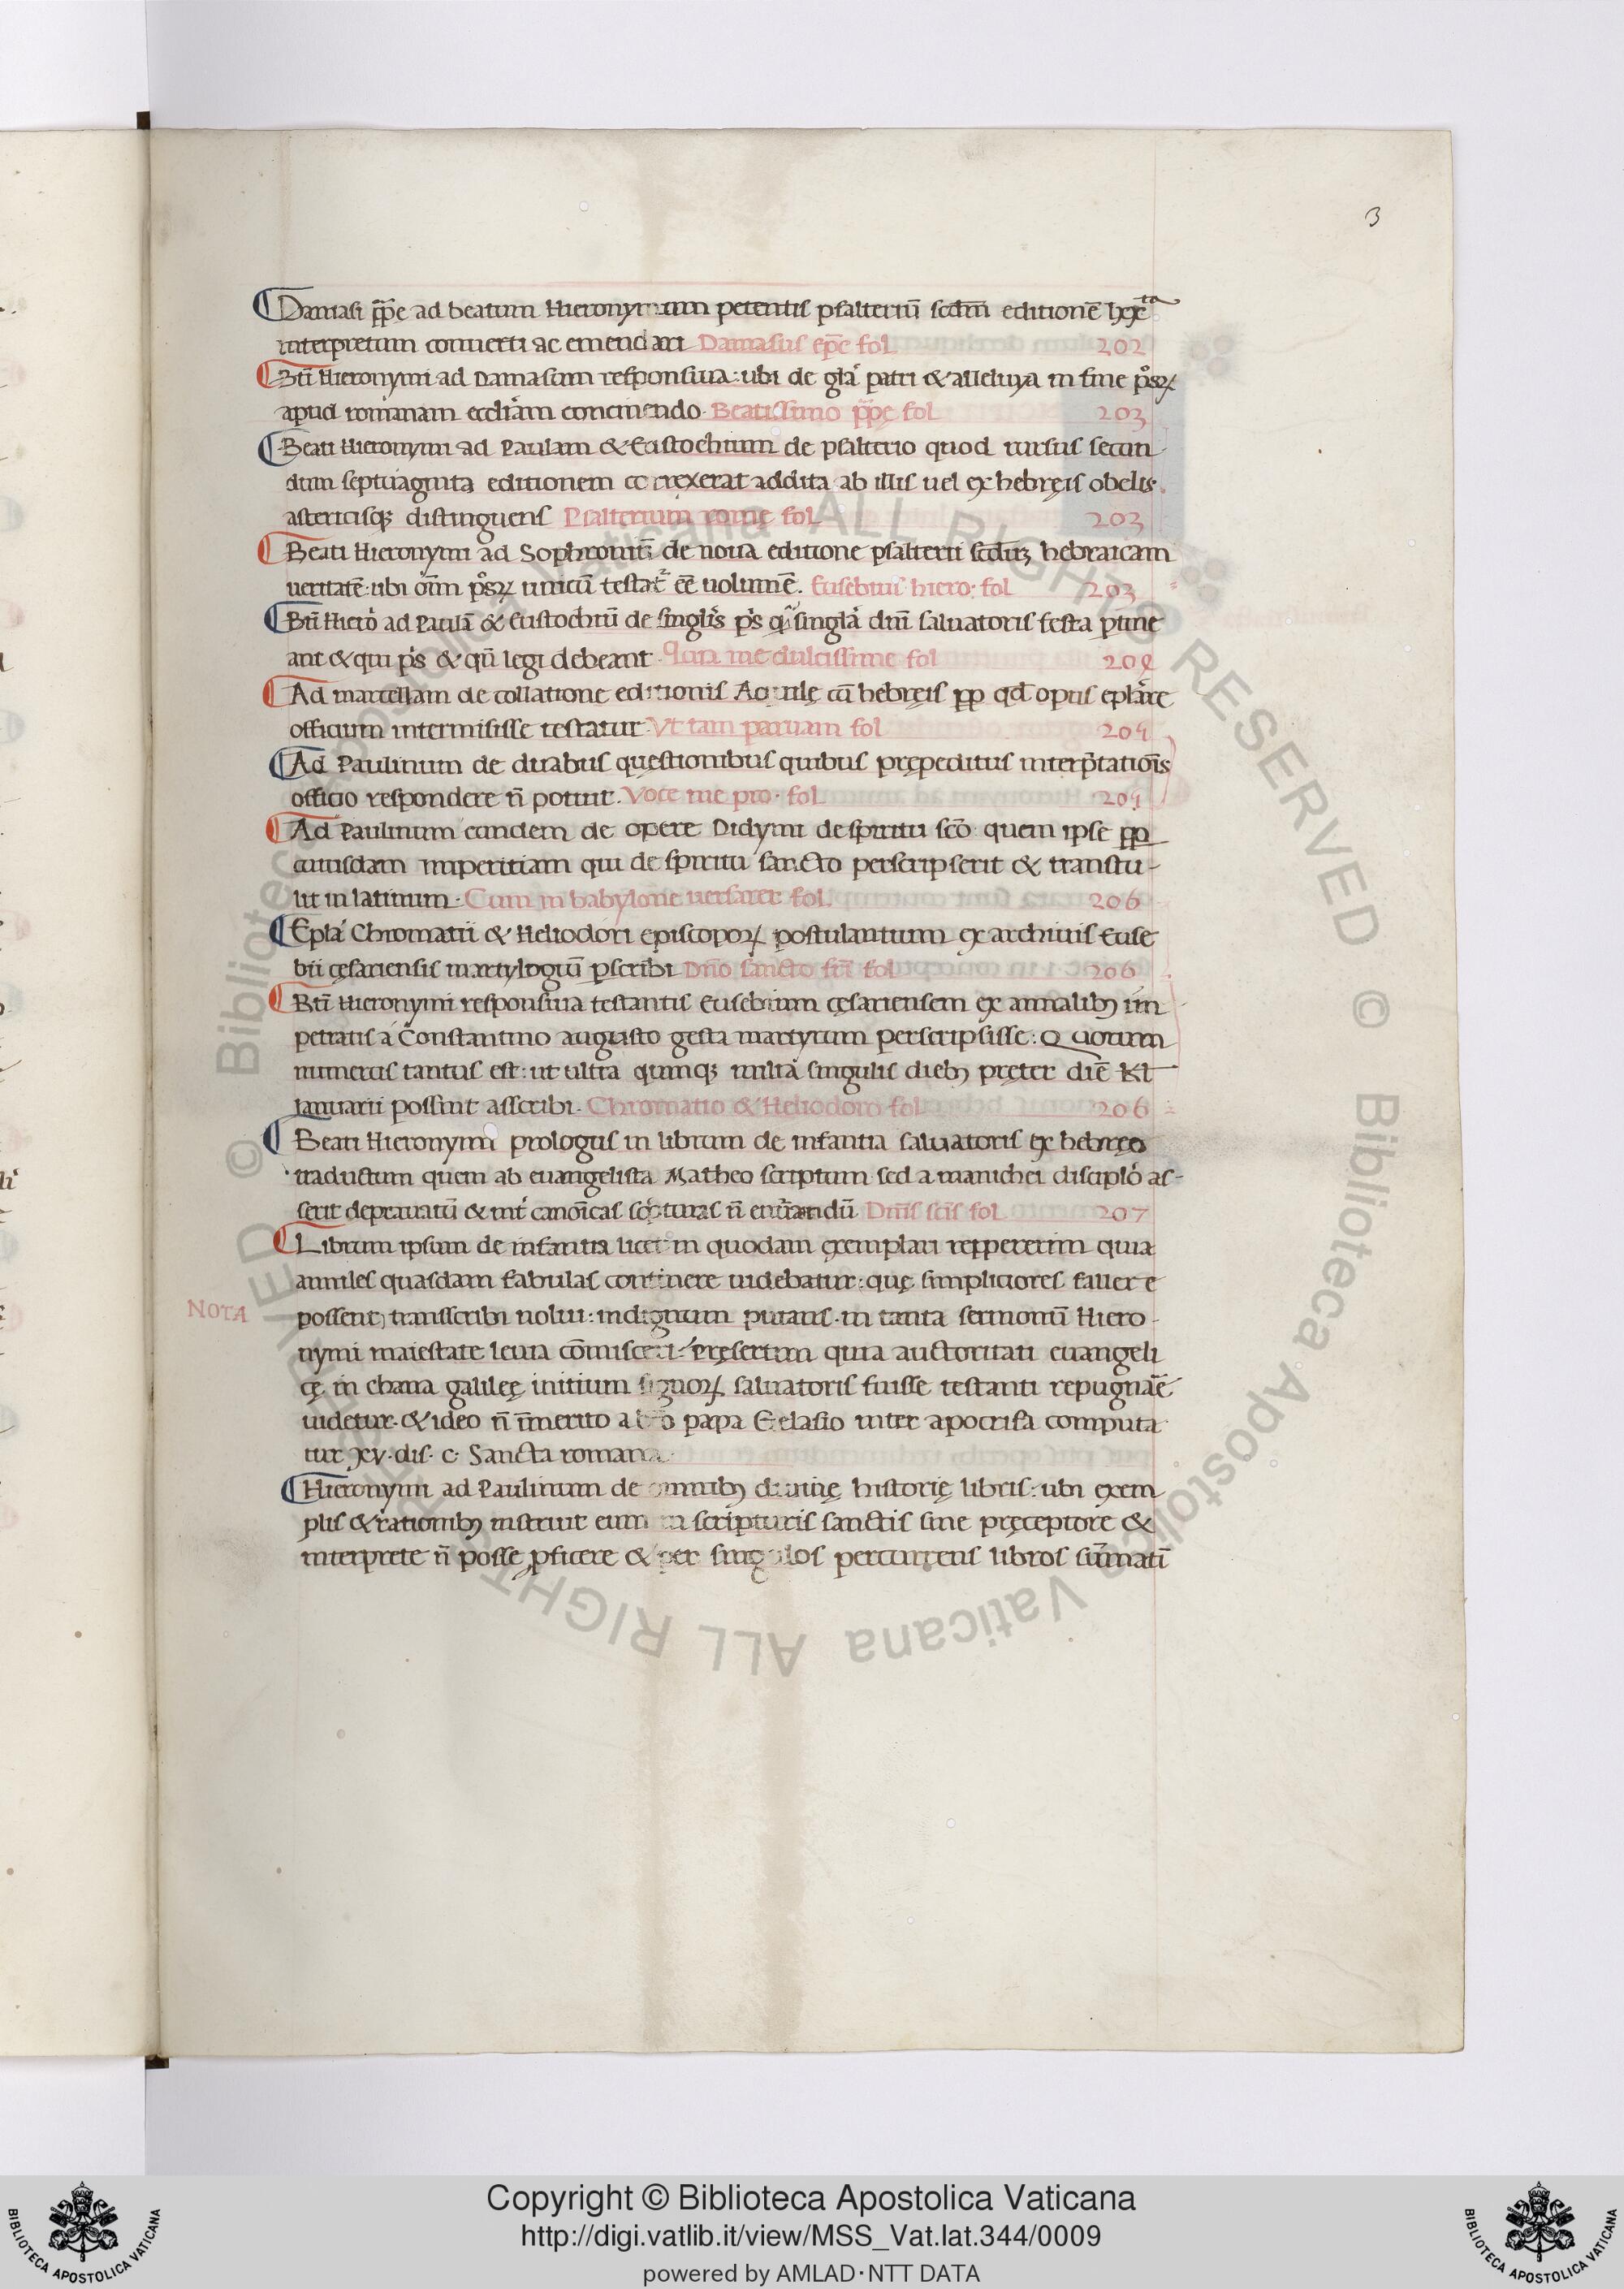 3
Damasi pp̄ę ad beatum Hieronymum petentis psalteriū scdm̄ editionē lxxta
interpretum conuerti ac emendari Damasus ep̄e fol 202
Bti Hieronymi ad Damasum responsiua: ubi de gla patri & alleluya in fine psorꝝ
apud romanam eccliam concinendo. Beatissimo pp̄ę fol 203
Beati Hieronymi ad Paulam & Eustochium de psalterio quod rursus secun
dum septuaginta editionem correxerat addita ab illis uel ex hebręis obelis
astericisqꝫ distinguens Psalterium romę fol 203
Beati Hieronymi ad Sophroniū de noua editione psalterii scdm hebraicam
ueritatē: ubi om̄m psorꝝ unicū testat̄ ēē uolumē. Eusebius hiero. fol 203
Bti Hiero ad Paulā & Eustochiū de singlis ps q singla dni saluatoris festa ptine
ant & qui ps & qn̄ legi debeant fol
Ad marcellam de collatione editionis Aquilę cū hebręis pp qd opus eplare
officium intermisisse testatur. Vt tam paruam fol 204
Ad Paulinum de duabus quęstionibus quibus prępeditus interp̄tationis
officio respondere n̄ potuit. Voce me pro. fol 204
Ad Paulinum eundem de opere Didymi de spiritu sco quem ipse pp
cuiusdam imperitiam qui de spiritu sancto perscripserit & transtu-
lit in latinum. Cum in babylone uersarer fol. 206
Epla Chromatii & Heliodori episcoporꝝ postulantium ex archiuis Euse
bii cęsariensis martylogiū pscribi Dno sancto fri fol 206
Bti Hieronymi responsiua testantis Eusebium cęsariensem ex annalibꝫ im
petratis a Constantino augusto gesta martyrum perscripsisse: Quorum
numerus tantus est: ut ultra quinqꝫ milia singulis diebꝫ pręter diē Kl
ianuarii possint asscribi. Chromatio & Heliodoro fol 206
Beati Hieronymi prologus in librum de infantia saluatoris ex hebręo
traductum quem ab euangelista Matheo scriptum sed a manichei disciplo as-
serit deprauatū & int canonicas scpturas n̄ enūrandū Dnis scis fol 207
Librum ipsum de infantia licet in quodam exemplari reppererim quia
aniles quasdam fabulas continere uidebatur: quę simpliciores fallere
NOTA
possent, transscribi nolui: indignum putans. in tanta sermonū Hiero-
nymi maiestate leuia cōmisceri: Pręsertim quia auctoritati euangeli
cę in chana galileę initium signorꝝ saluatoris fuisse testanti repugnāe
uidetur. & ideo n̄ īmerito a papa Gelasio inter apocrifa computa
tur xv. dis. c. Sancta romana.
Hieronymi ad Paulinum de omnibꝫ diuinę historię libris: ubi exem
plis & rationibꝫ instruit eum in scripturis sanctis sine pręceptore &
interprete n̄ posse pficere & per singulos percurrens libros sūmatī
© Biblioteca Apostolica Vaticana ALL RIGHTS RESERVED © Biblioteca Apostolica Vaticana ALL RIGHTS RESERVED
Copyright © Biblioteca Apostolica Vaticana
http://digi.vatlib.it/view/MSS_Vat.lat.344/0009
powered by AMLAD·NTT DATA
BIBLIOTECA APOSTOLICA VATICANA
BIBLIOTECA APOSTOLICA VATICANA